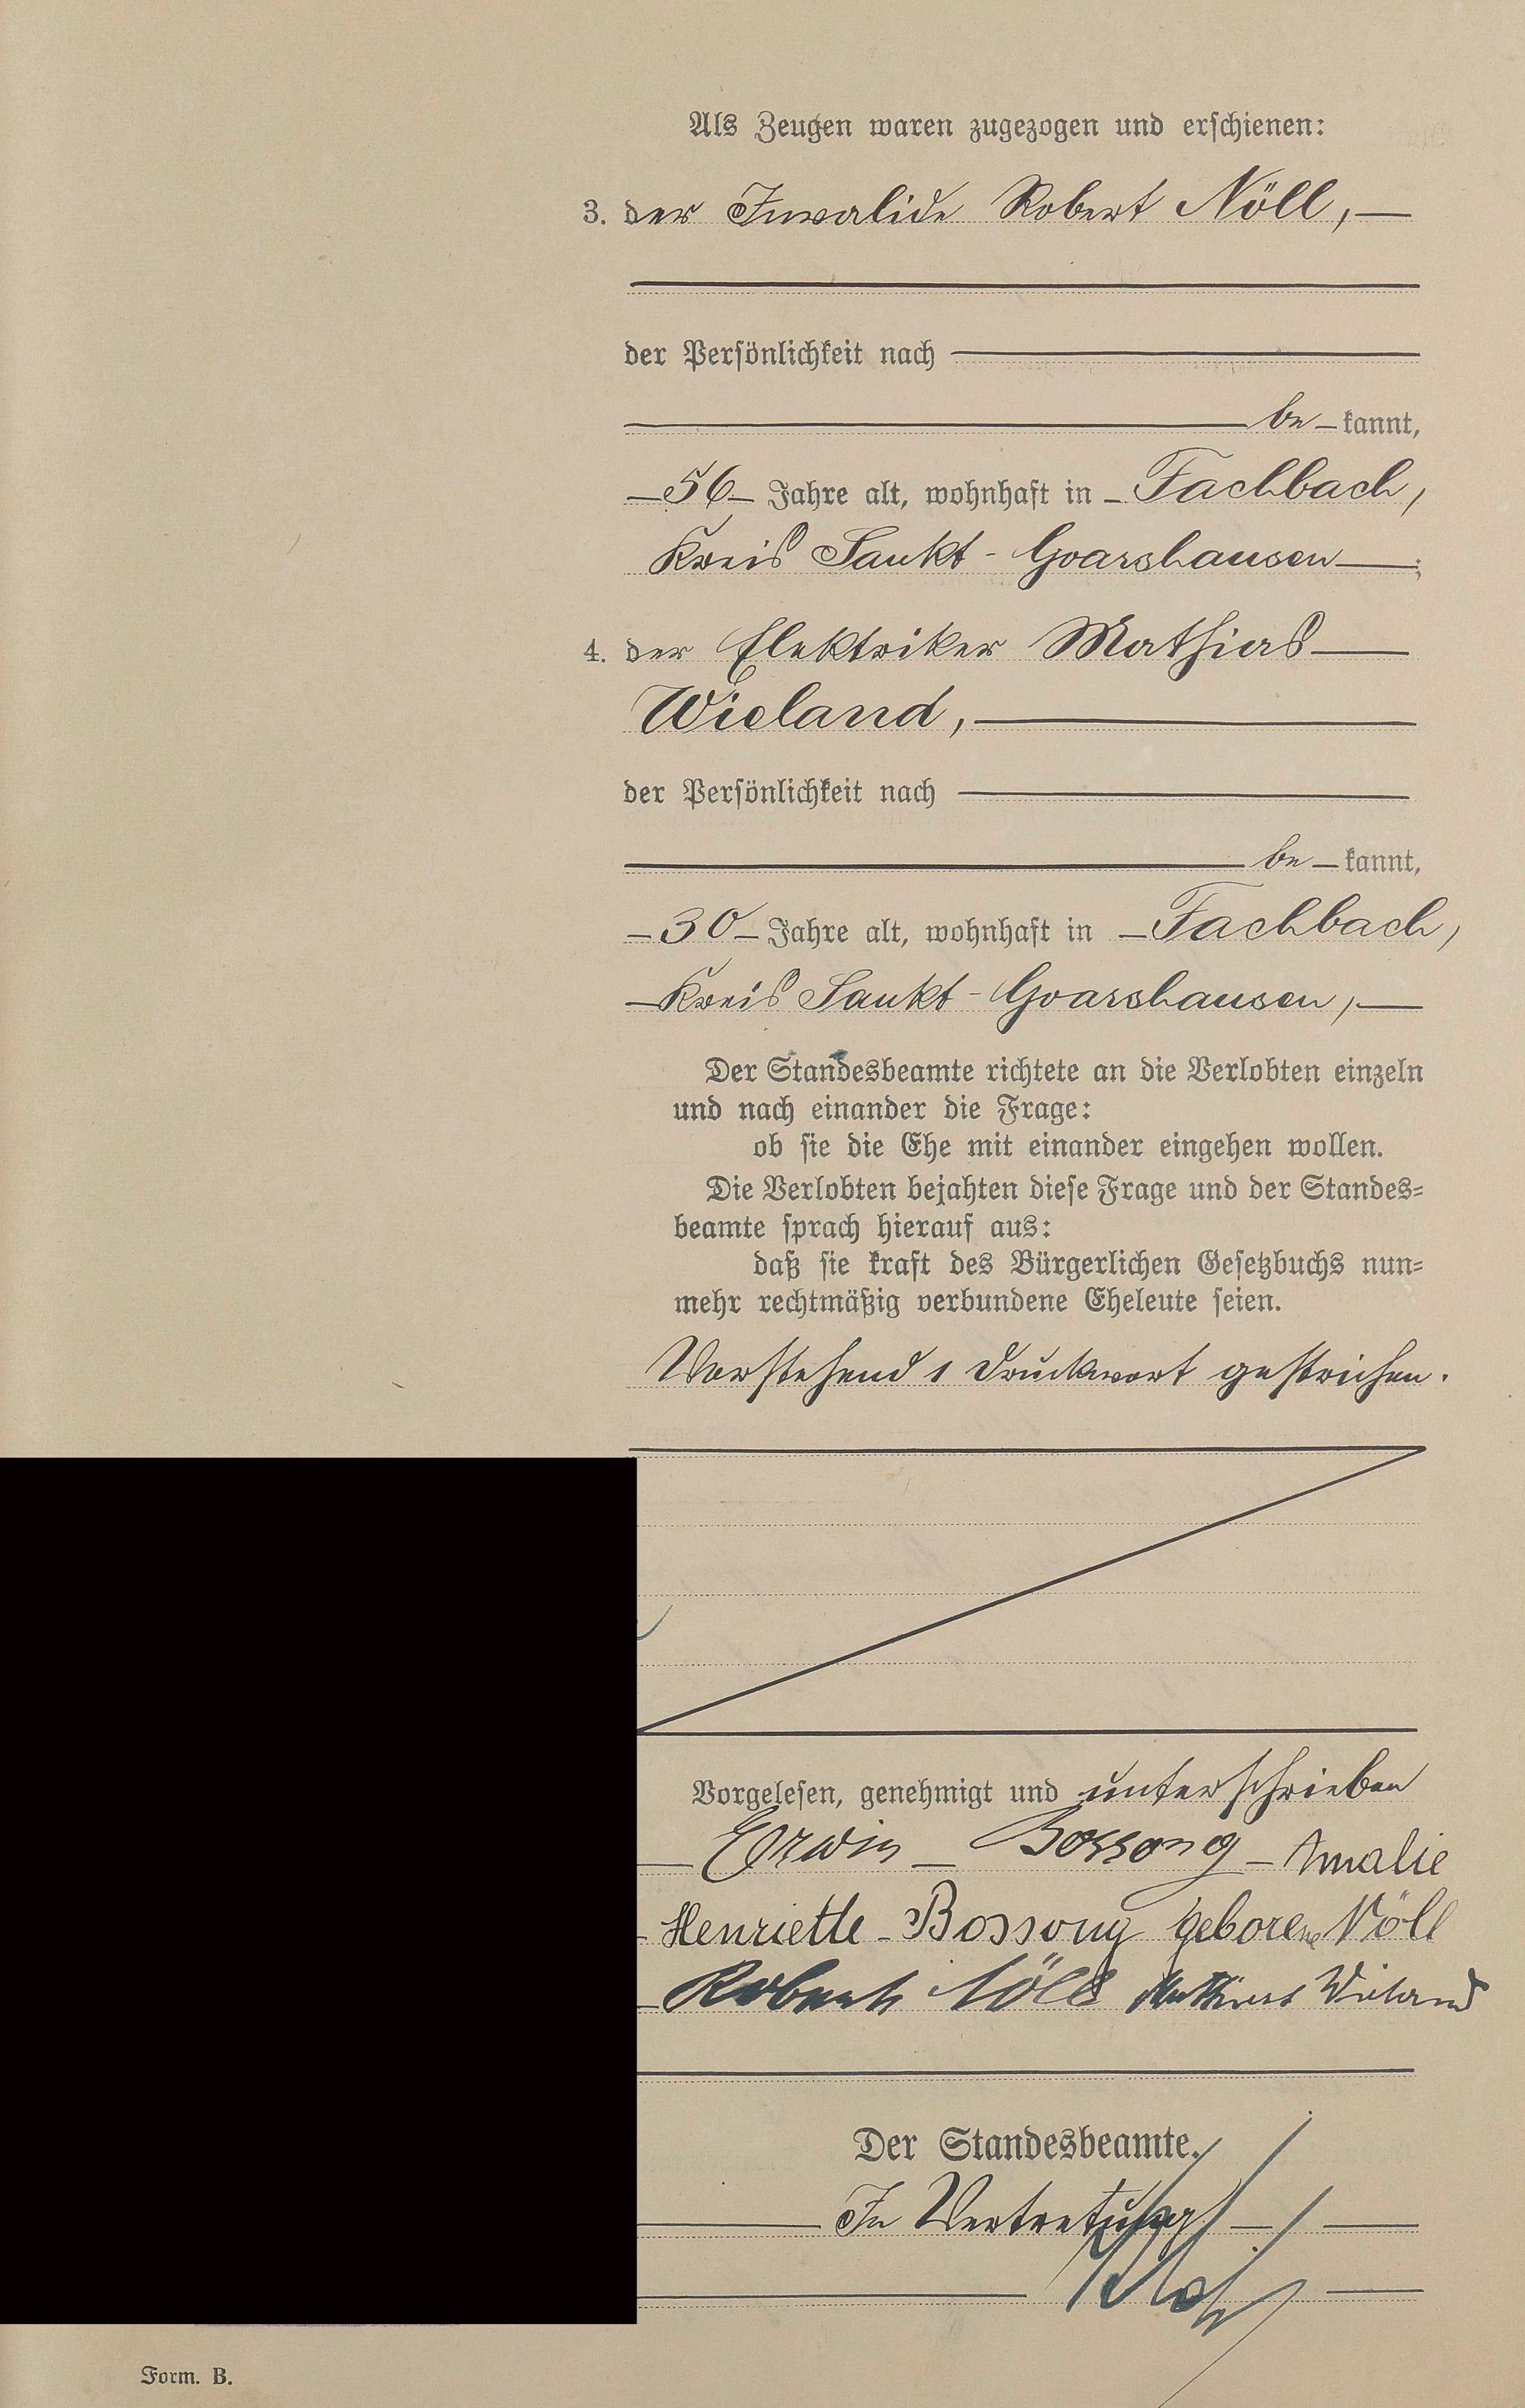 Als Zeugen waren zugezogen und erschienen:
3. der Invalide Robert Nöll, —
der Persönlichkeit nach
be — kannt,
— 56 — Jahre alt, wohnhaft in — Fachbach,
Kreis Sankt-Goarshausen — ;
4. der Elektriker Mathias —
Wieland, —
der Persönlichkeit nach
be — kannt,
— 30 — Jahre alt, wohnhaft in — Fachbach,
— Kreis Sankt-Goarshausen, —
Der Standesbeamte richtete an die Verlobten einzeln
und nach einander die Frage:
ob sie die Ehe mit einander eingehen wollen.
Die Verlobten bejahten diese Frage und der Standes-
beamte sprach hierauf aus:
daß sie kraft des Bürgerlichen Gesetzbuchs nun-
mehr rechtmäßig verbundene Eheleute seien.
Vorstehend 1 Druckwort gestrichen.
Vorgelesen, genehmigt und unterschrieben
— Erwin — Bossong — Amalie
- Henriette - Bossong geborene Nöll
- Robert Nöll Mathias Wieland
Der Standesbeamte.
In Vertretung
Form. B.